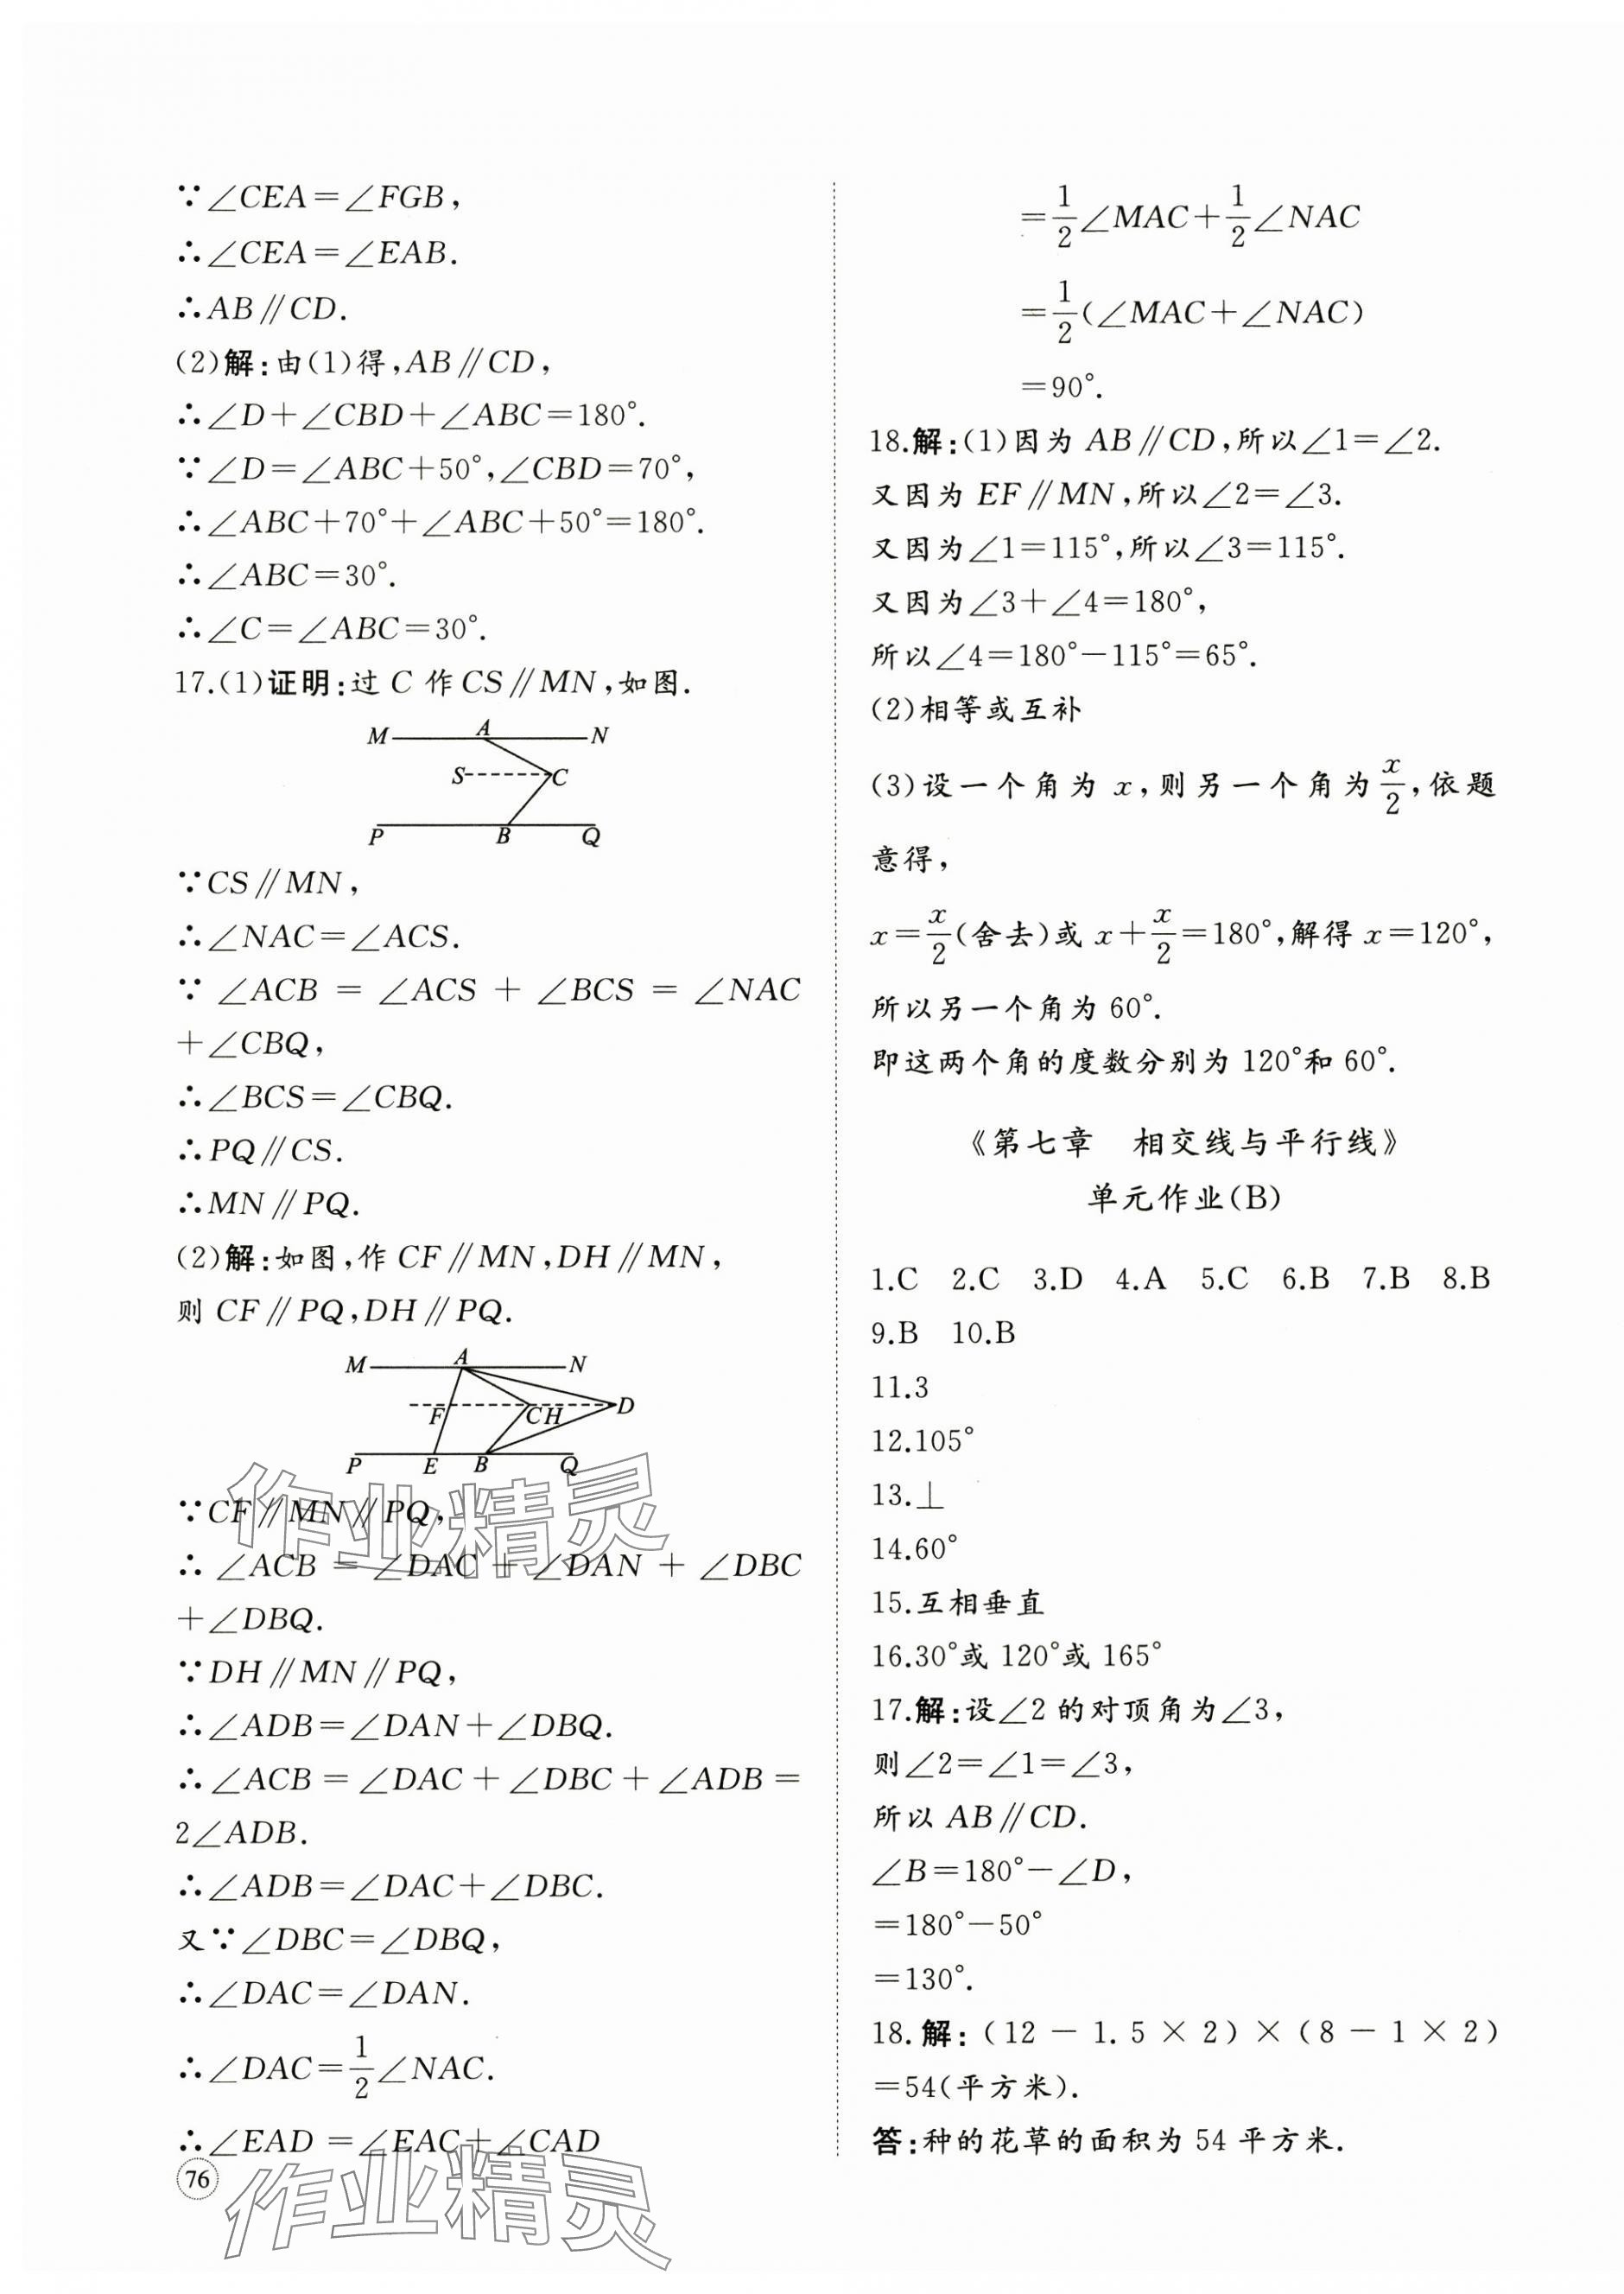 ∵∠CEA=∠FGB,
∴∠CEA=∠EAB.
∴AB∥CD.
(2)解:由(1)得,AB∥CD,
∴∠D+∠CBD+∠ABC=180°.
∵∠D=∠ABC+50°,∠CBD=70°,
∴∠ABC+70°+∠ABC+50°=180°.
∴∠ABC=30°.
∴∠C=∠ABC=30°.
17.(1)证明:过 C 作 CS∥MN,如图.
M A N
S C
P B Q
∵CS∥MN,
∴∠NAC=∠ACS.
∵ ∠ACB = ∠ACS + ∠BCS = ∠NAC
+∠CBQ,
∴∠BCS=∠CBQ.
∴PQ∥CS.
∴MN∥PQ.
(2)解:如图,作 CF∥MN,DH∥MN,
则 CF∥PQ,DH∥PQ.
M A N
F C H D
P E B Q
∵CF∥MN∥PQ,
∴ ∠ACB = ∠DAC + ∠DAN + ∠DBC
+∠DBQ.
∵DH∥MN∥PQ,
∴∠ADB=∠DAN+∠DBQ.
∴∠ACB=∠DAC+∠DBC+∠ADB=
2∠ADB.
∴∠ADB=∠DAC+∠DBC.
又∵∠DBC=∠DBQ,
∴∠DAC=∠DAN.
∴∠DAC=1/2∠NAC.
∴∠EAD =∠EAC+∠CAD
76
作业精灵
作业精灵
=1/2∠MAC+1/2∠NAC
=1/2(∠MAC+∠NAC)
=90°.
18.解:(1)因为 AB∥CD,所以∠1=∠2.
又因为 EF∥MN,所以∠2=∠3.
又因为∠1=115°,所以∠3=115°.
又因为∠3+∠4=180°,
所以∠4=180°-115°=65°.
(2)相等或互补
(3)设一个角为 x,则另一个角为x/2,依题
意得,
x=x/2(舍去)或 x+x/2=180°,解得 x=120°,
所以另一个角为 60°.
即这两个角的度数分别为 120°和 60°.
《第七章 相交线与平行线》
单元作业(B)
1.C 2.C 3.D 4.A 5.C 6.B 7.B 8.B
9.B 10.B
11.3
12.105°
13.⊥
14.60°
15.互相垂直
16.30°或 120°或 165°
17.解:设∠2 的对顶角为∠3,
则∠2=∠1=∠3,
所以 AB∥CD.
∠B=180°-∠D,
=180°-50°
=130°.
18.解:(12-1.5×2)×(8-1×2)
=54(平方米).
答:种的花草的面积为 54 平方米.